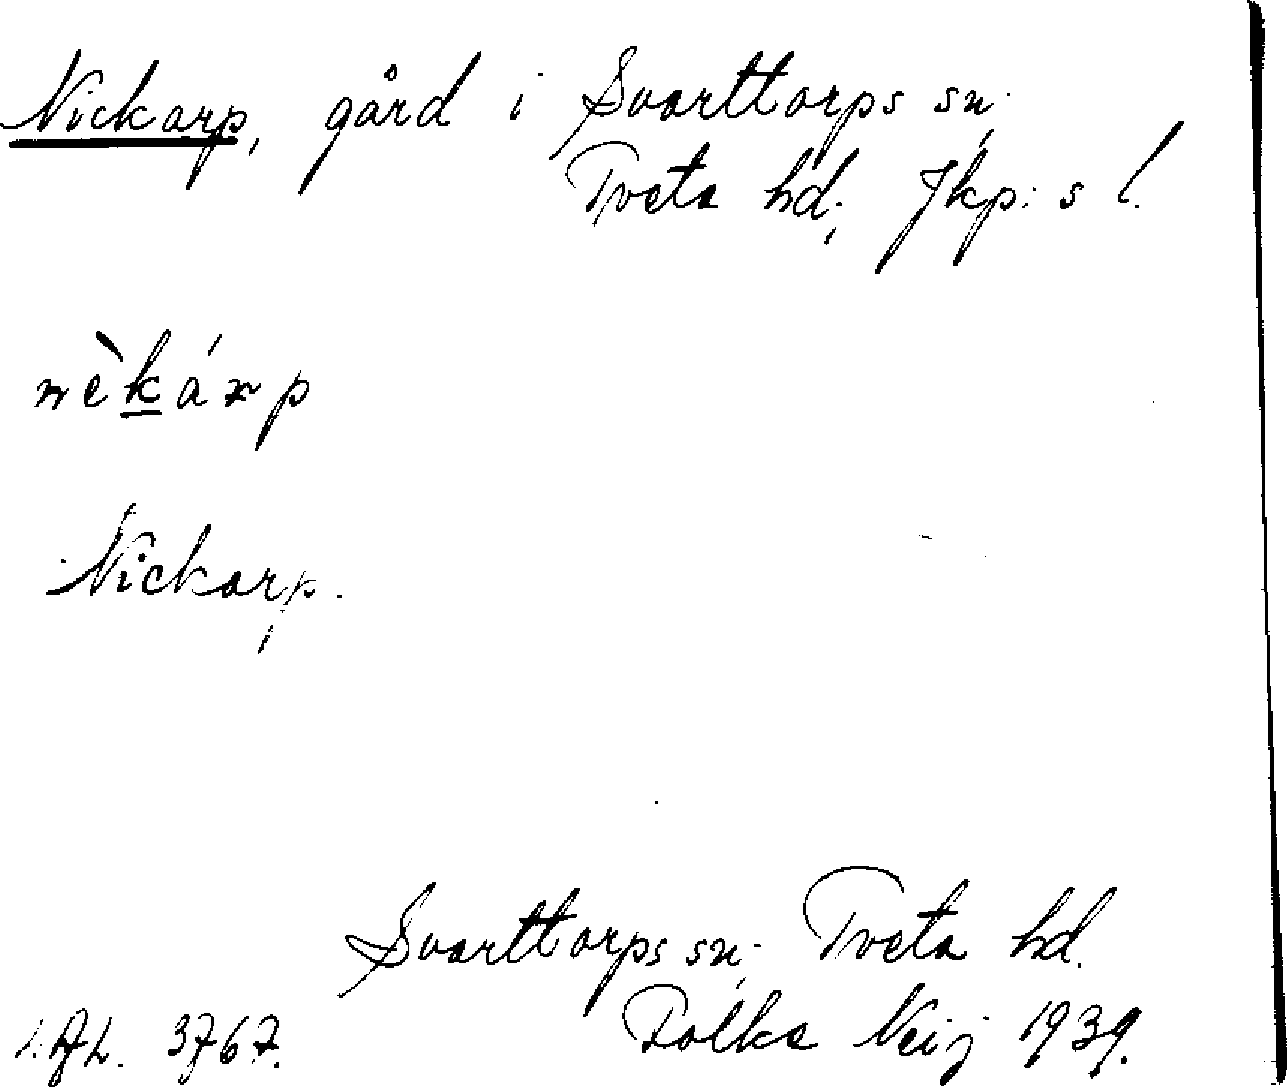 Nickarp, gård i Svarttorps sn;
Tveta hd; Jkp: s l.
nèkárp
Nickarp.
Svarttorps sn; Tveta hd.
Polke Neij 1939.
3767.